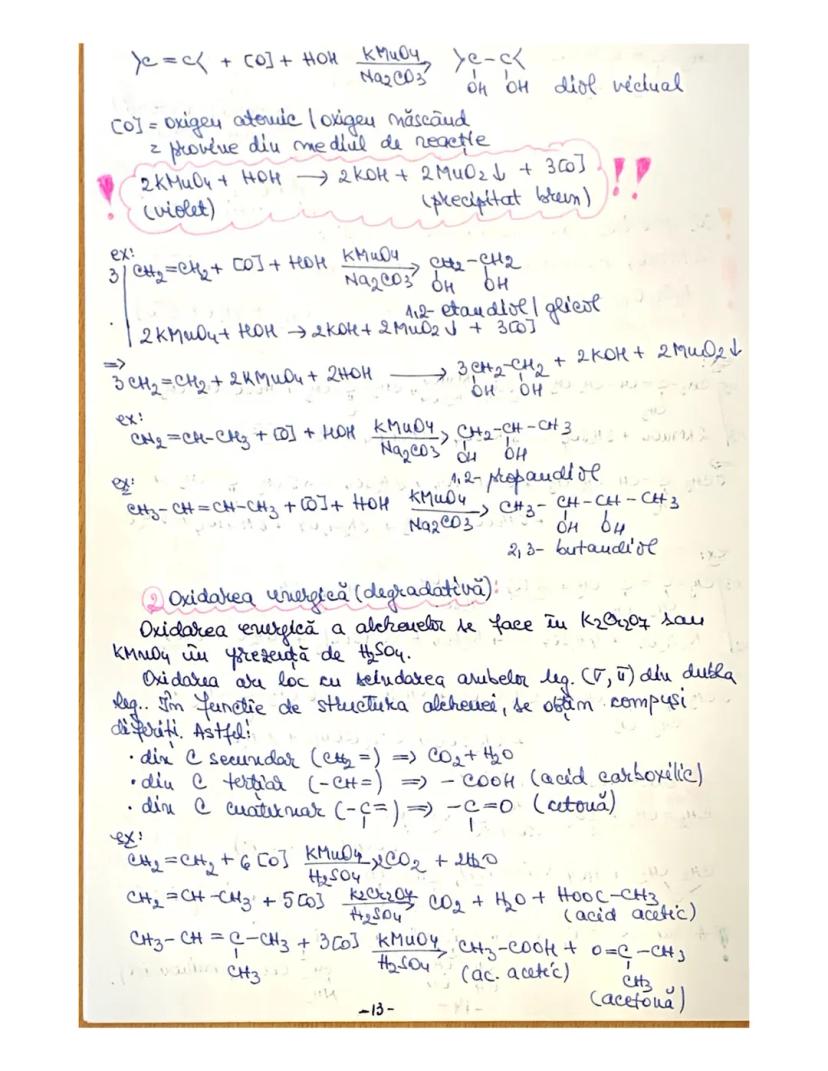 >C=C< + [O] + HOH —KMnO4/Na2CO3→ >C-C< diol vicinal
OH OH
[O] = oxigen atomic / oxigen născând
= provine din mediul de reacție
! 2KMnO4 + HOH → 2KOH + 2MnO2↓ + 3[O] !!
(violet) (precipitat brun)
ex:
3| CH2=CH2 + [O] + HOH —KMnO4/Na2CO3→ CH2-CH2
OH OH
1,2-etandiol / glicol
2KMnO4 + HOH → 2KOH + 2MnO2↓ + 3[O]
=>
3CH2=CH2 + 2KMnO4 + 2HOH → 3CH2-CH2 + 2KOH + 2MnO2↓
OH OH
ex:
CH2=CH-CH3 + [O] + HOH —KMnO4/Na2CO3→ CH2-CH-CH3
OH OH
1,2-propandiol
ex:
CH3-CH=CH-CH3 + [O] + HOH —KMnO4/Na2CO3→ CH3-CH-CH-CH3
OH OH
2,3-butandiol
② Oxidarea energică (degradativă):
Oxidarea energică a alchenelor se face în K2Cr2O7 sau
KMnO4 în prezență de H2SO4.
Oxidarea are loc cu scindarea ambelor leg. (σ, π) din dubla
leg.. În funcție de structura alchenei, se obțin compuși
diferiți. Astfel:
· din C secundar (CH2=) => CO2 + H2O
· din C terțiar (-CH=) => -COOH (acid carboxilic)
· din C cuaternar (-C=) => -C=O (cetonă)
ex:
CH2=CH2 + 6[O] —KMnO4/H2SO4→ 2CO2 + 2H2O
CH2=CH-CH3 + 5[O] —K2Cr2O7/H2SO4→ CO2 + H2O + HOOC-CH3
(acid acetic)
CH3-CH=C-CH3 + 3[O] —KMnO4/H2SO4→ CH3-COOH + O=C-CH3
CH3 (ac. acetic) CH3
(acetonă)
-13-